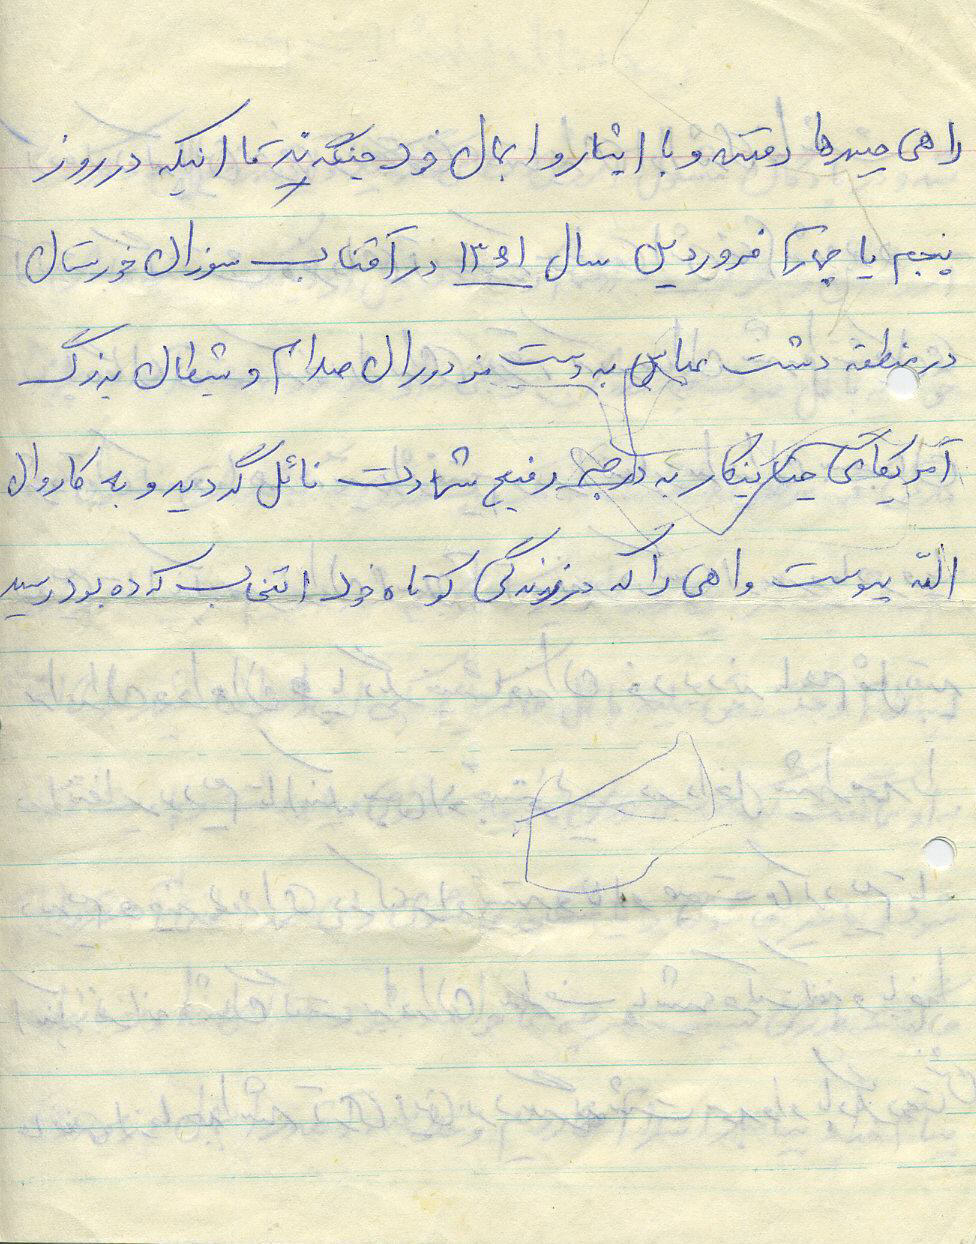 راهی جبهه‌ها رفته و با ایثار و ایمان خود جنگیدند تا اینکه در روز
پنجم یا چهارم فروردین سال ۱۳۶۱ در آفتاب سوزان خوزستان
در منطقه دشت عباس به دست مزدوران صدام و شیطان بزرگ
آمریکای جنایتکار به درجه رفیع شهادت نائل گردید و به کاروان
الله پیوست و راهی را که در زندگی کوتاه خود انتخاب کرده بود رسید